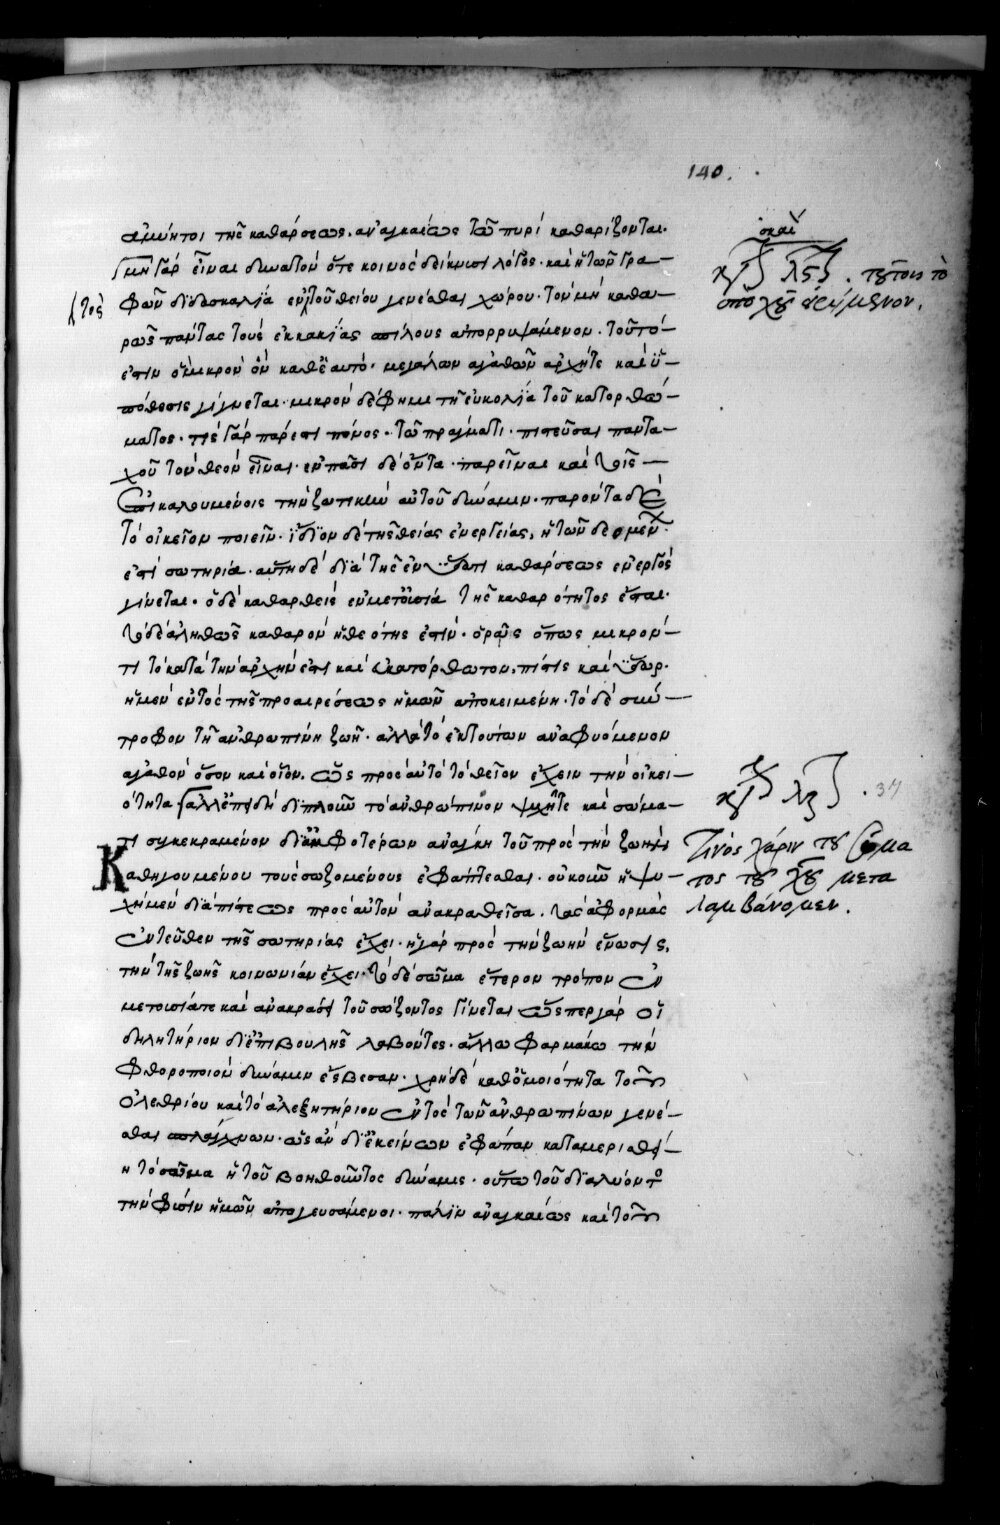 140.
ἀμύητοι τῆς καθάρσεως, ἀναγκαίως τῶ πυρὶ καθαρίζονται.
μὴ γὰρ εἶναι δυνατὸν ὅτε κοινὸς δείκνυσι λόγος. καὶ ἡ τῶν γρα–
φῶν διδασκαλία ἐντὸς τοῦ θείου γενέσθαι χώρου. τὸν μὴ καθα–
ρῶς πάντας τοὺς ἐκ κακίας σπίλους ἀπορρυψάμενον. τοῦτό–
ἐστιν ὃ μικρὸν ὂν καθ' ἑαυτὸ. μεγάλων ἀγαθῶν ἀρχήτε καὶ ὑ–
πόθεσις γίγνεται. μικρὸν δέ φημι τῇ εὐκολίᾳ τοῦ κατορθώ–
ματος. τίς γὰρ πάρεστι πόνος. τῶ πράγματι. πιστεῦσαι παντα–
χοῦ τὸν θεὸν εἶναι. ἐν πᾶσι δὲ ὄντα. παρεῖναι καὶ τοῖς –
ἐπικαλουμένοις τὴν ζωτικὴν αὐτοῦ δύναμιν. παρόντα δὲ
τὸ οἰκεῖον ποιεῖν. ἴδιον δὲ τῆς θείας ἐνεργείας, ἡ τῶν δεομένων
ἐστὶ σωτηρία. αὕτη δὲ διὰ τῆς ἐν ὕδατι καθάρσεως ἐνεργὸς
γίνεται. ὁ δὲ καθαρθεὶς ἐν μετουσία τῆς καθαρότητος ἔσται.
τὸ δὲ ἀληθῶς καθαρὸν ἡ θεότης ἐστίν. ὁρᾷς ὅπως μικρόν–
τι τὸ κατὰ τὴν ἀρχήν ἐστι καὶ εὐκατόρθωτον, πίστις καὶ ὕδωρ.
ἡ μὲν ἐντὸς τῆς προαιρέσεως ἡμῶν ἀποκειμένη. τὸ δὲ σύν–
τροφον τῇ ἀνθρωπίνη ζωῇ. ἀλλὰ τὸ ἐκ τούτων ἀναφυόμενον
ἀγαθὸν ὅσον καὶ οἷον, ὡς πρὸς αὐτὸ τὸ θεῖον ἔχειν τὴν οἰκει–
ότητα ἀλλ' ἐπειδὴ διπλοῦν τὸ ἀνθρώπινον ψυχῇτε καὶ σώμα–
τι συγκεκραμένον δι' ἀμφοτέρων ἀνάγκη τοῦ πρὸς τὴν ζωὴν
Καθηγουμένου τοὺς σωζομένους ἐφάπτεσθαι. οὐκοῦν ἡ ψυ–
χὴ μὲν διὰ πίστεως πρὸς αὐτὸν ἀνακραθεῖσα. τὰς ἀφορμὰς
ἐντεῦθεν τῆς σωτηρίας ἔχει. ἡ γὰρ πρὸς τὴν ζωὴν ἕνωσις,
τὴν τῆς ζωῆς κοινωνίαν ἔχει. τὸ δὲ σῶμα ἕτερον τρόπον ἐν
μετουσίατε καὶ ἀνακράσει τοῦ σώζοντος γίνεται ὥσπερ γὰρ οἱ
δηλητήριον δι' ἐπιβουλῆς λαβόντες. ἄλλω φαρμάκω τὴν
φθοροποιὸν δύναμιν ἔσβεσαν. χρὴ δὲ καθ' ὁμοιότητα τοῦ
ὀλεθρίου καὶ τὸ ἀλεξητήριον ἐντὸς τῶν ἀνθρωπίνων γενέ–
σθαι σπλάγχνων. ὡς ἂν δι' ἐκείνων ἐφ' ἅπαν καταμερισθεί–
η τὸ σῶμα ἡ τοῦ βοηθοῦντος δύναμις. οὕτω τοῦ διαλύοντος
τὴν φύσιν ἡμῶν ἀπογευσάμενοι. πάλιν ἀναγκαίως καὶ τοῦ
τὸς
λς. τούτοις τὸ
ὑπὸ χυ εἰρημένον.
λζ. 37
Τίνος χάριν τοῦ σώμα
τος τοῦ χυ μετα
λαμβάνομεν.